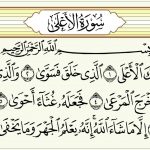 سُورَةُ الْأَعْلَىٰ
بِسْمِ اللَّهِ الرَّحْمَٰنِ الرَّحِيمِ
الْأَعْلَى ١ الَّذِي خَلَقَ فَسَوَّىٰ ٢ وَالَّذِي
الْمَرْعَىٰ ٤ فَجَعَلَهُ غُثَاءً أَحْوَىٰ ٥
إِلَّا مَا شَاءَ اللَّهُ إِنَّهُ يَعْلَمُ الْجَهْرَ وَمَا يَخْفَىٰ